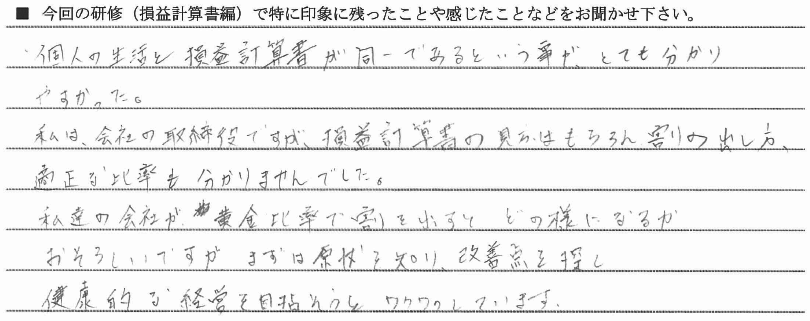 ■ 今回の研修（損益計算書編）で特に印象に残ったことや感じたことなどをお聞かせ下さい。
・個人の生活と損益計算書が同一であるという事が、とても分かり
やすかった。
私は、会社の取締役ですが、損益計算書の見方はもちろん割りの出し方、
適正な比率も分かりませんでした。
私達の会社が黄金比率で割を出すと どの様になるか
おそろしいですが まずは原状を知り、改善点を探し
健康的な経営を目指そうと ワクワクしています。